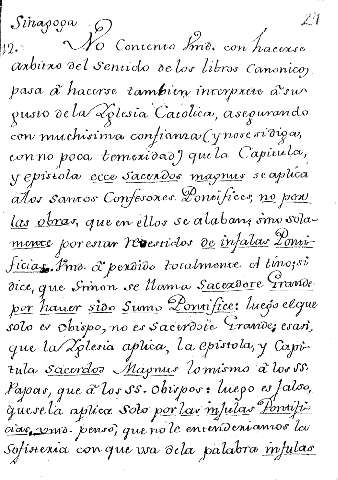 Sinagoga 21
12. No Contento Vmd. con hacerse
arbitro del Sentido de los libros Canonicos,
pasa â hacerse tambien interprete â su
gusto de la Yglesia Catolica, asegurando
con muchisima confianza (y no se si diga,
con no poca temeridad) que la Capitula,
y epistola ecce Sacerdos magnus se aplica
â los Santos Confesores Pontifices, no por
las obras, que en ellos se alaban, sino sola-
mente por estar revestidos de infulas Ponti-
ficias. Vmd. â perdido totalmente el tino; si
dice, que Simon se llama Sacerdote Grande
por haver sido Sumo Pontifice: luego el que
solo es obispo, no es Sacerdote Grande; es asi,
que la Yglesia aplica, la epistola, y Capi-
tula Sacerdos Magnus lo mismo â los SS.
Papas, que â los SS. obispos: luego es falso,
que se la aplica solo por las infulas Pontifi-
cias. Vmd. pensò, que no le entenderiamos la
Sofisteria con que usa de la palabra infulas